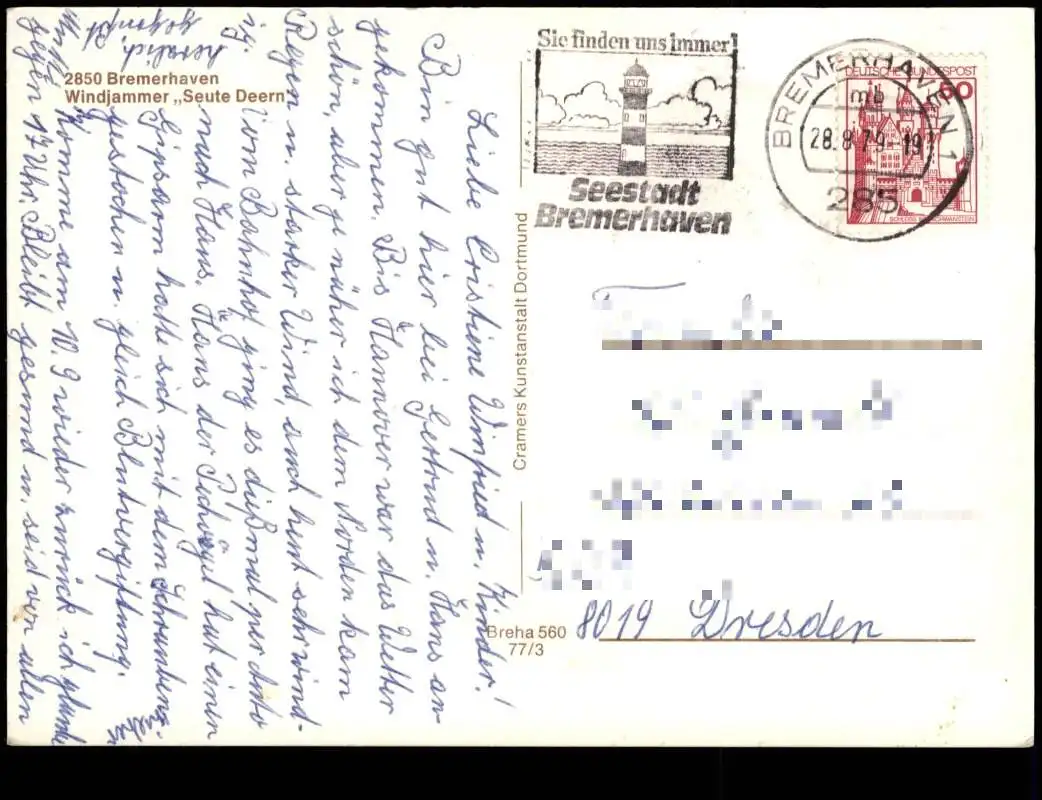 2850 Bremerhaven
Windjammer „Seute Deern"
Liebe Cristiene Winfried u. Kinder!
Bin gut hier bei Gertrud u. Hans an-
gekommen. Bis Hannover war das Wetter
schön, aber je näher ich dem Norden kam
Regen u. starker Wind, auch heut sehr wind-
ig. Vom Bahnhof ging es dießmal per Auto
nach Haus. Hans der Pechvogel hat einen
Gipsarm hatte sich mit dem Schrauben-
gestochen u. gleich Blutvergiftung.
Komme am 10. 9 wieder zurück ich glaube
gegen 17 Uhr. Bleibt gesund u. seid von allen
herzlich
Cramers Kunstanstalt Dortmund
Breha 560
77/3
Sie finden uns immer!
Seestadt
Bremerhaven
BREMERHAVEN 1
mb
28.8.79-19
285
DEUTSCHE BUNDESPOST
60
SCHLOSS NEUSCHWANSTEIN
8019 Dresden